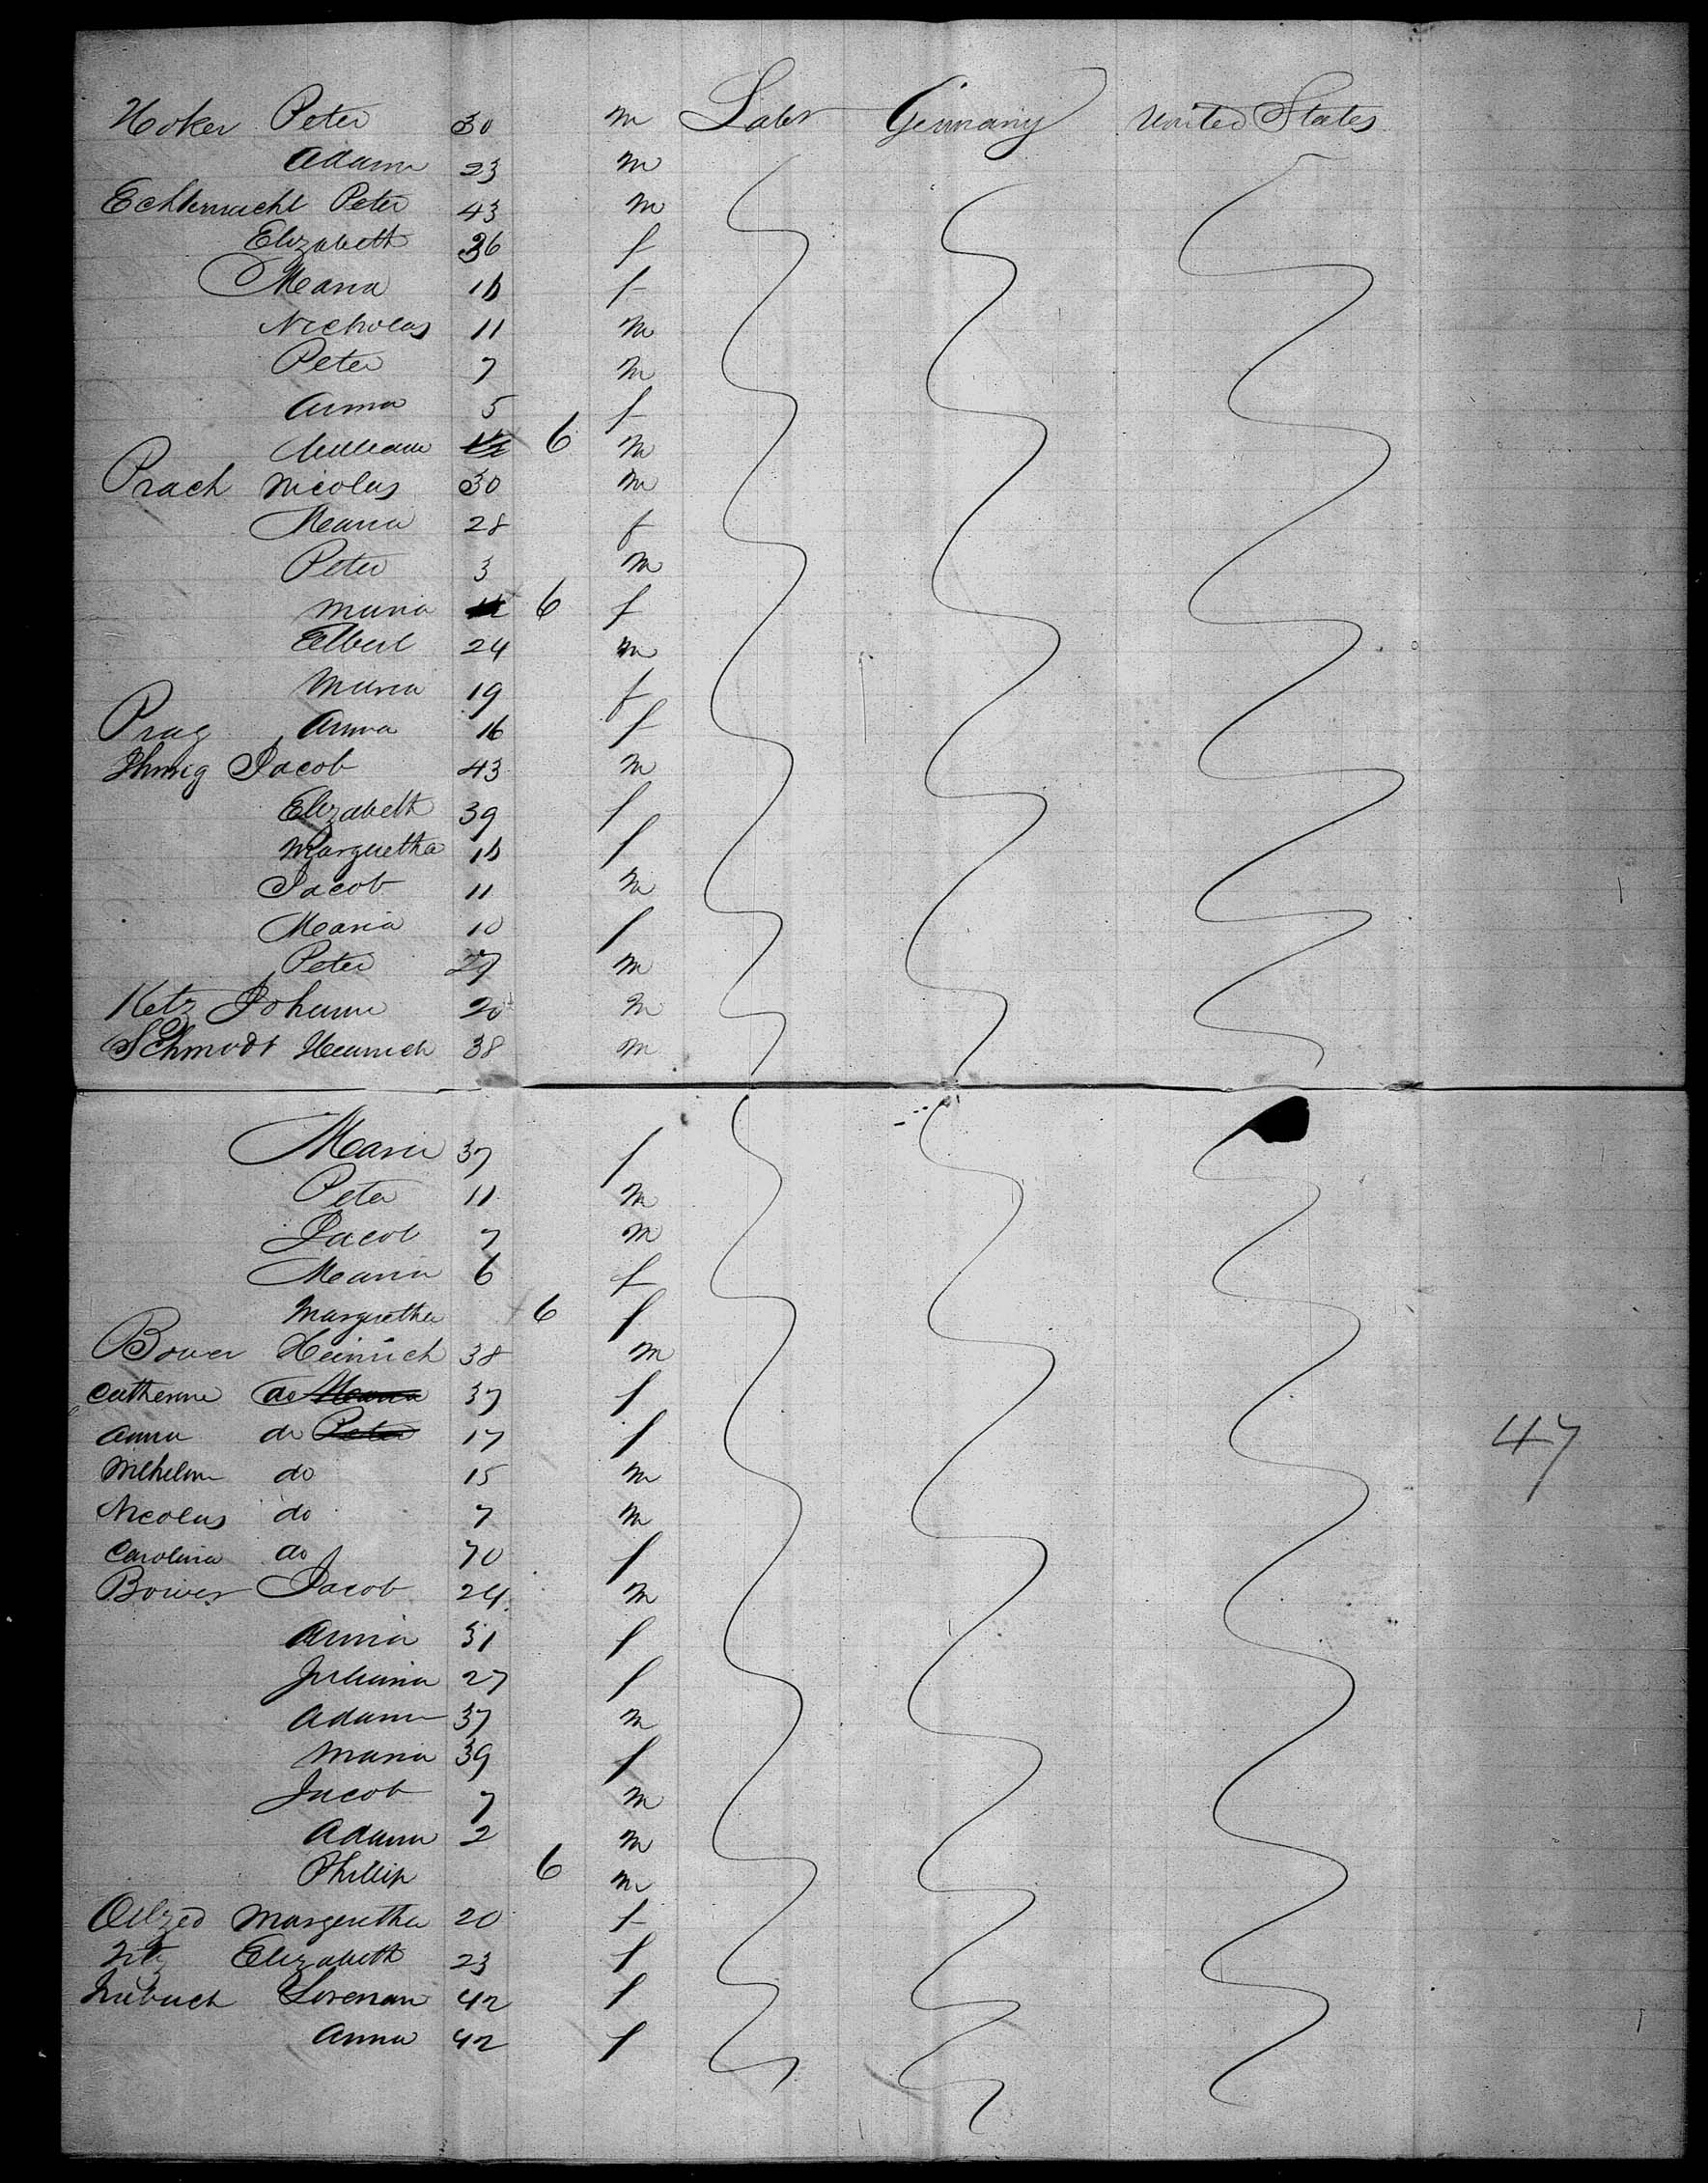 Hoker Peter 30 m Labr Germany United States
Adam 23 m
Echternacht Peter 43 m
Elizabeth 36 f
Maria 16 f
Nicholas 11 m
Peter 7 m
Anna 5 f
William 6 m
Prach Nicolas 30 m
Maria 28 f
Peter 3 m
Maria 6 f
Elbert 24 m
Maria 19 f
Prag Anna 16 f
Jacob 43 m
Elizabeth 39 f
Margretha 16 f
Jacob 11 m
Maria 10 f
Peter 29 m
Ketz Johann 20 m
Schmodt Heinrich 38 m
Maria 37 f
Peter 11 m
Jacob 7 m
Maria 6 f
Margretha 6 f
Bower Heinrich 38 m
Catherine do Maria 37 f
Anna do Peter 17 f
47
Wilhelm do 15 m
Nicolas do 7 m
Carolina do 70 f
Bower Jacob 24 m
Anna 31 f
Juliana 27 f
Adam 37 m
Maria 39 f
Jacob 7 m
Adam 2 m
Phillip 6 m
Margretha 20 f
Elizabeth 23 f
42 f
Anna 42 f